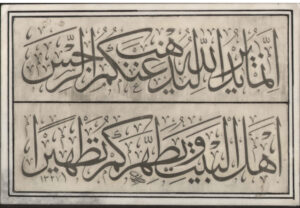 انما يريد الله ليذهب عنكم الرجس
اهل البيت ويطهركم تطهيرا